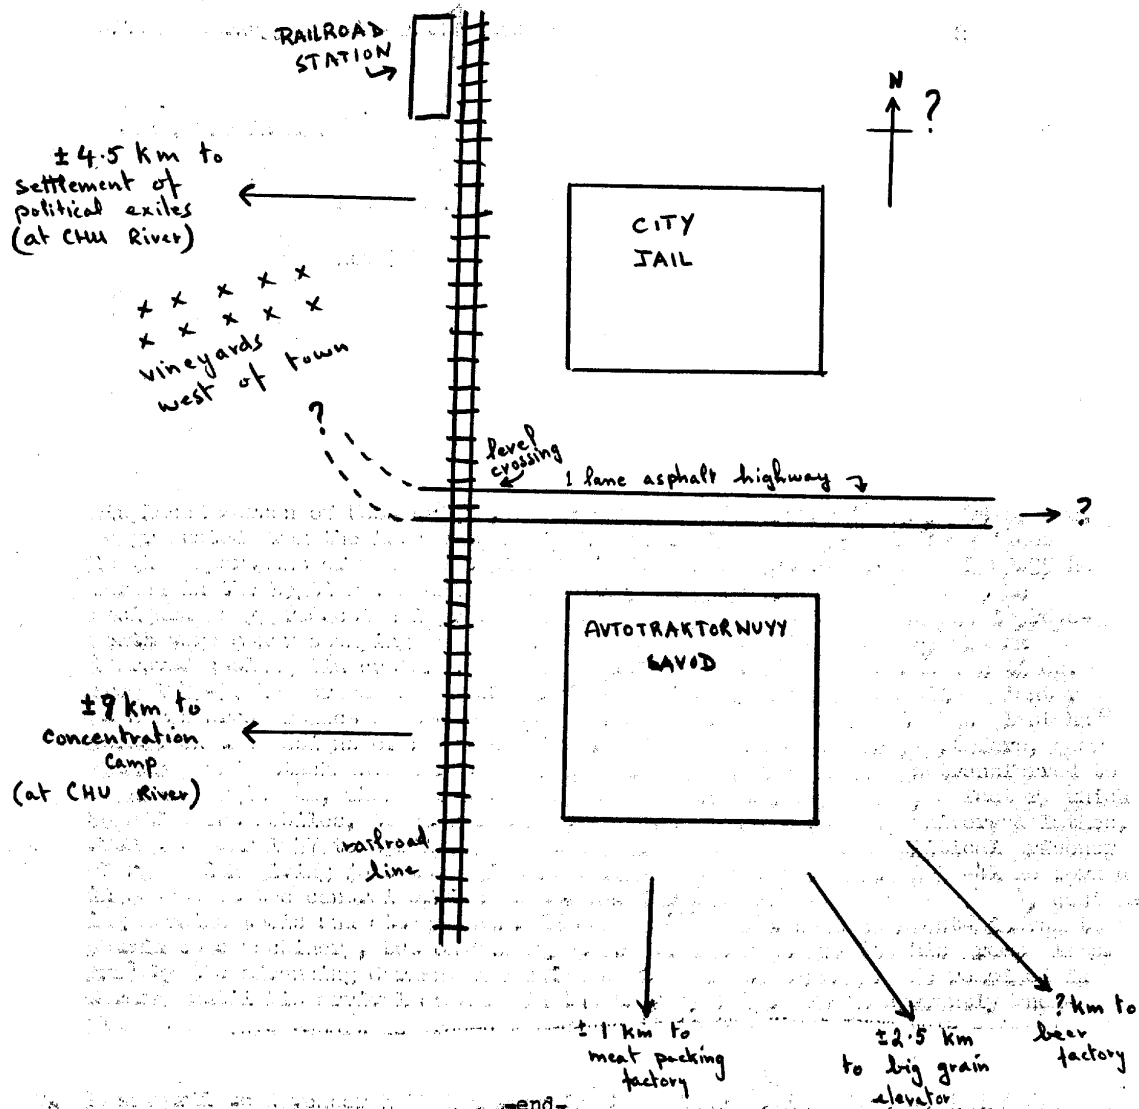 RAILROAD
STATION
N
?
±4.5 km to
settlement of
political exiles
(at CHU River)
CITY
JAIL
vineyards
west of town
?
level
crossing
1 lane asphalt highway
?
AVTOTRAKTORNUYY
ZAVOD
±9 km to
concentration
camp
(at CHU River)
railroad
line
±1 km to
meat packing
factory
±2.5 km
to big grain
elevator
? km to
beer
factory
-end-